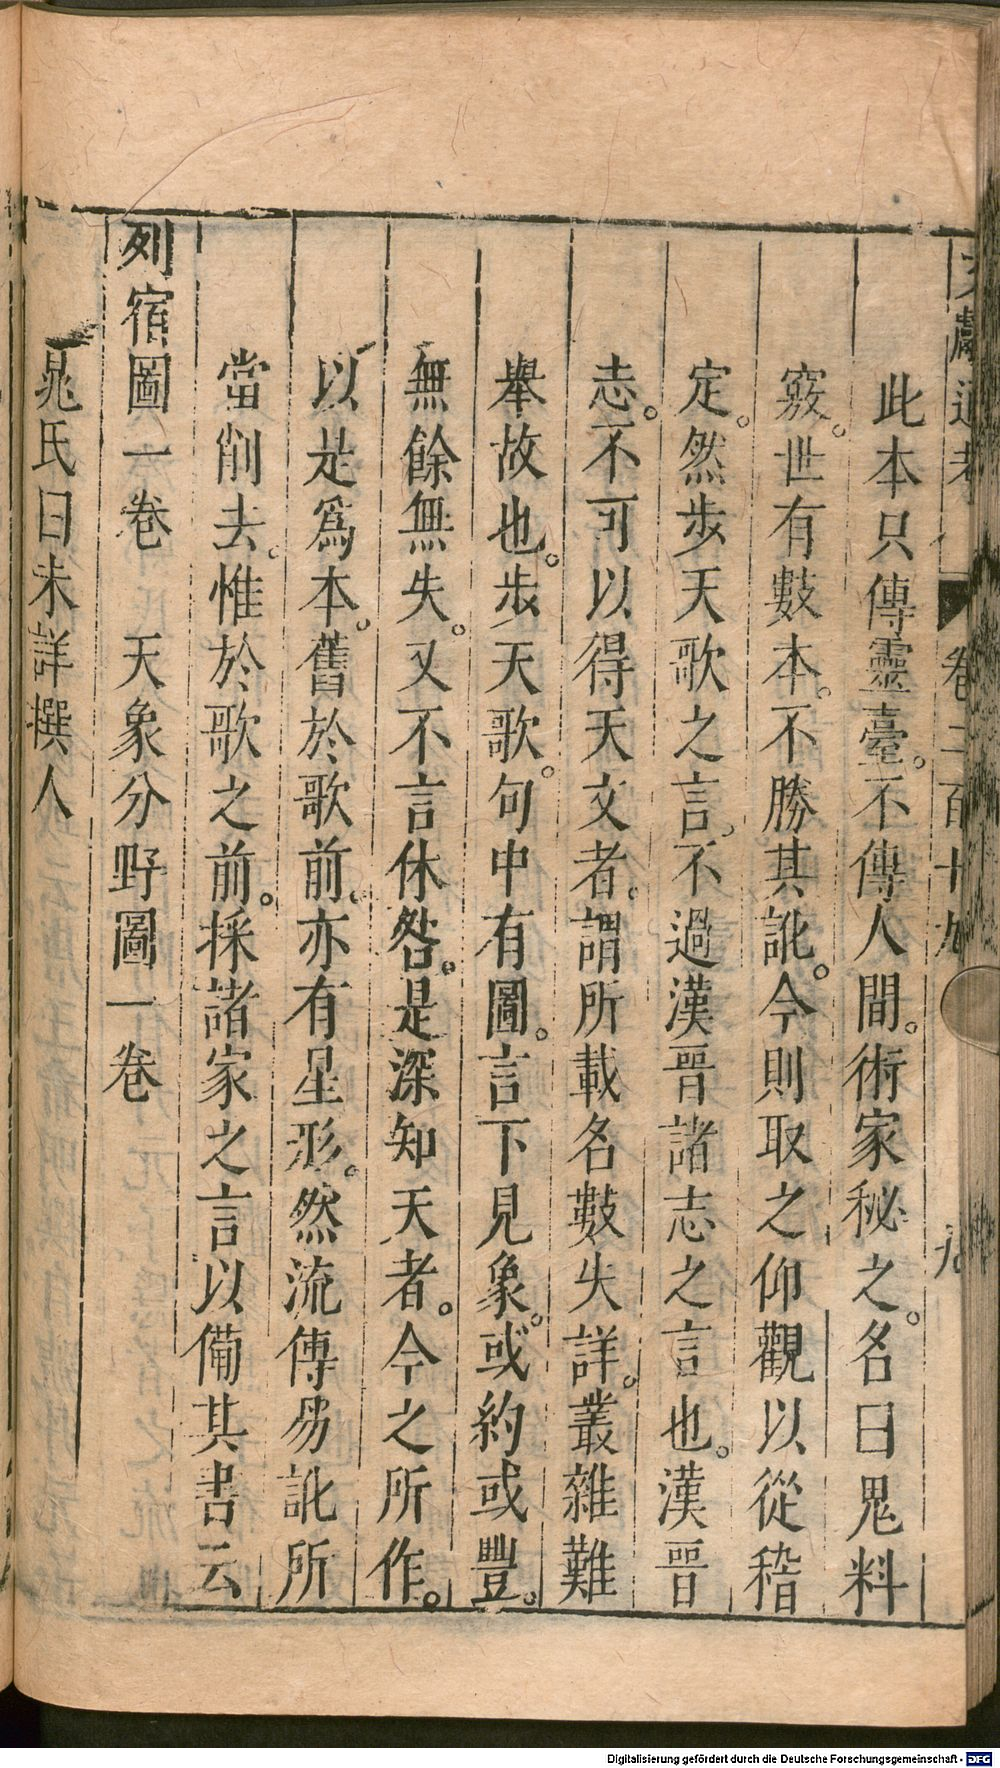 文獻通考 卷二百十九 九
此本只傳靈臺。不傳人間。術家秘之。名曰鬼料
竅。世有數本。不勝其訛。今則取之仰觀以從稽
定。然步天歌之言。不過漢晉諸志之言也。漢晉
志。不可以得天文者。謂所載名數失詳。叢雜難
舉故也。步天歌。句中有圖。言下見象。或約或豐。
無餘無失。又不言休咎。是深知天者。今之所作。
以是爲本。舊於歌前。亦有星形。然流傳易訛所
當削去。惟於歌之前。採諸家之言以備其書云
列宿圖一卷 天象分野圖一卷
晁氏曰未詳撰人
Digitalisierung gefördert durch die Deutsche Forschungsgemeinschaft - DFG